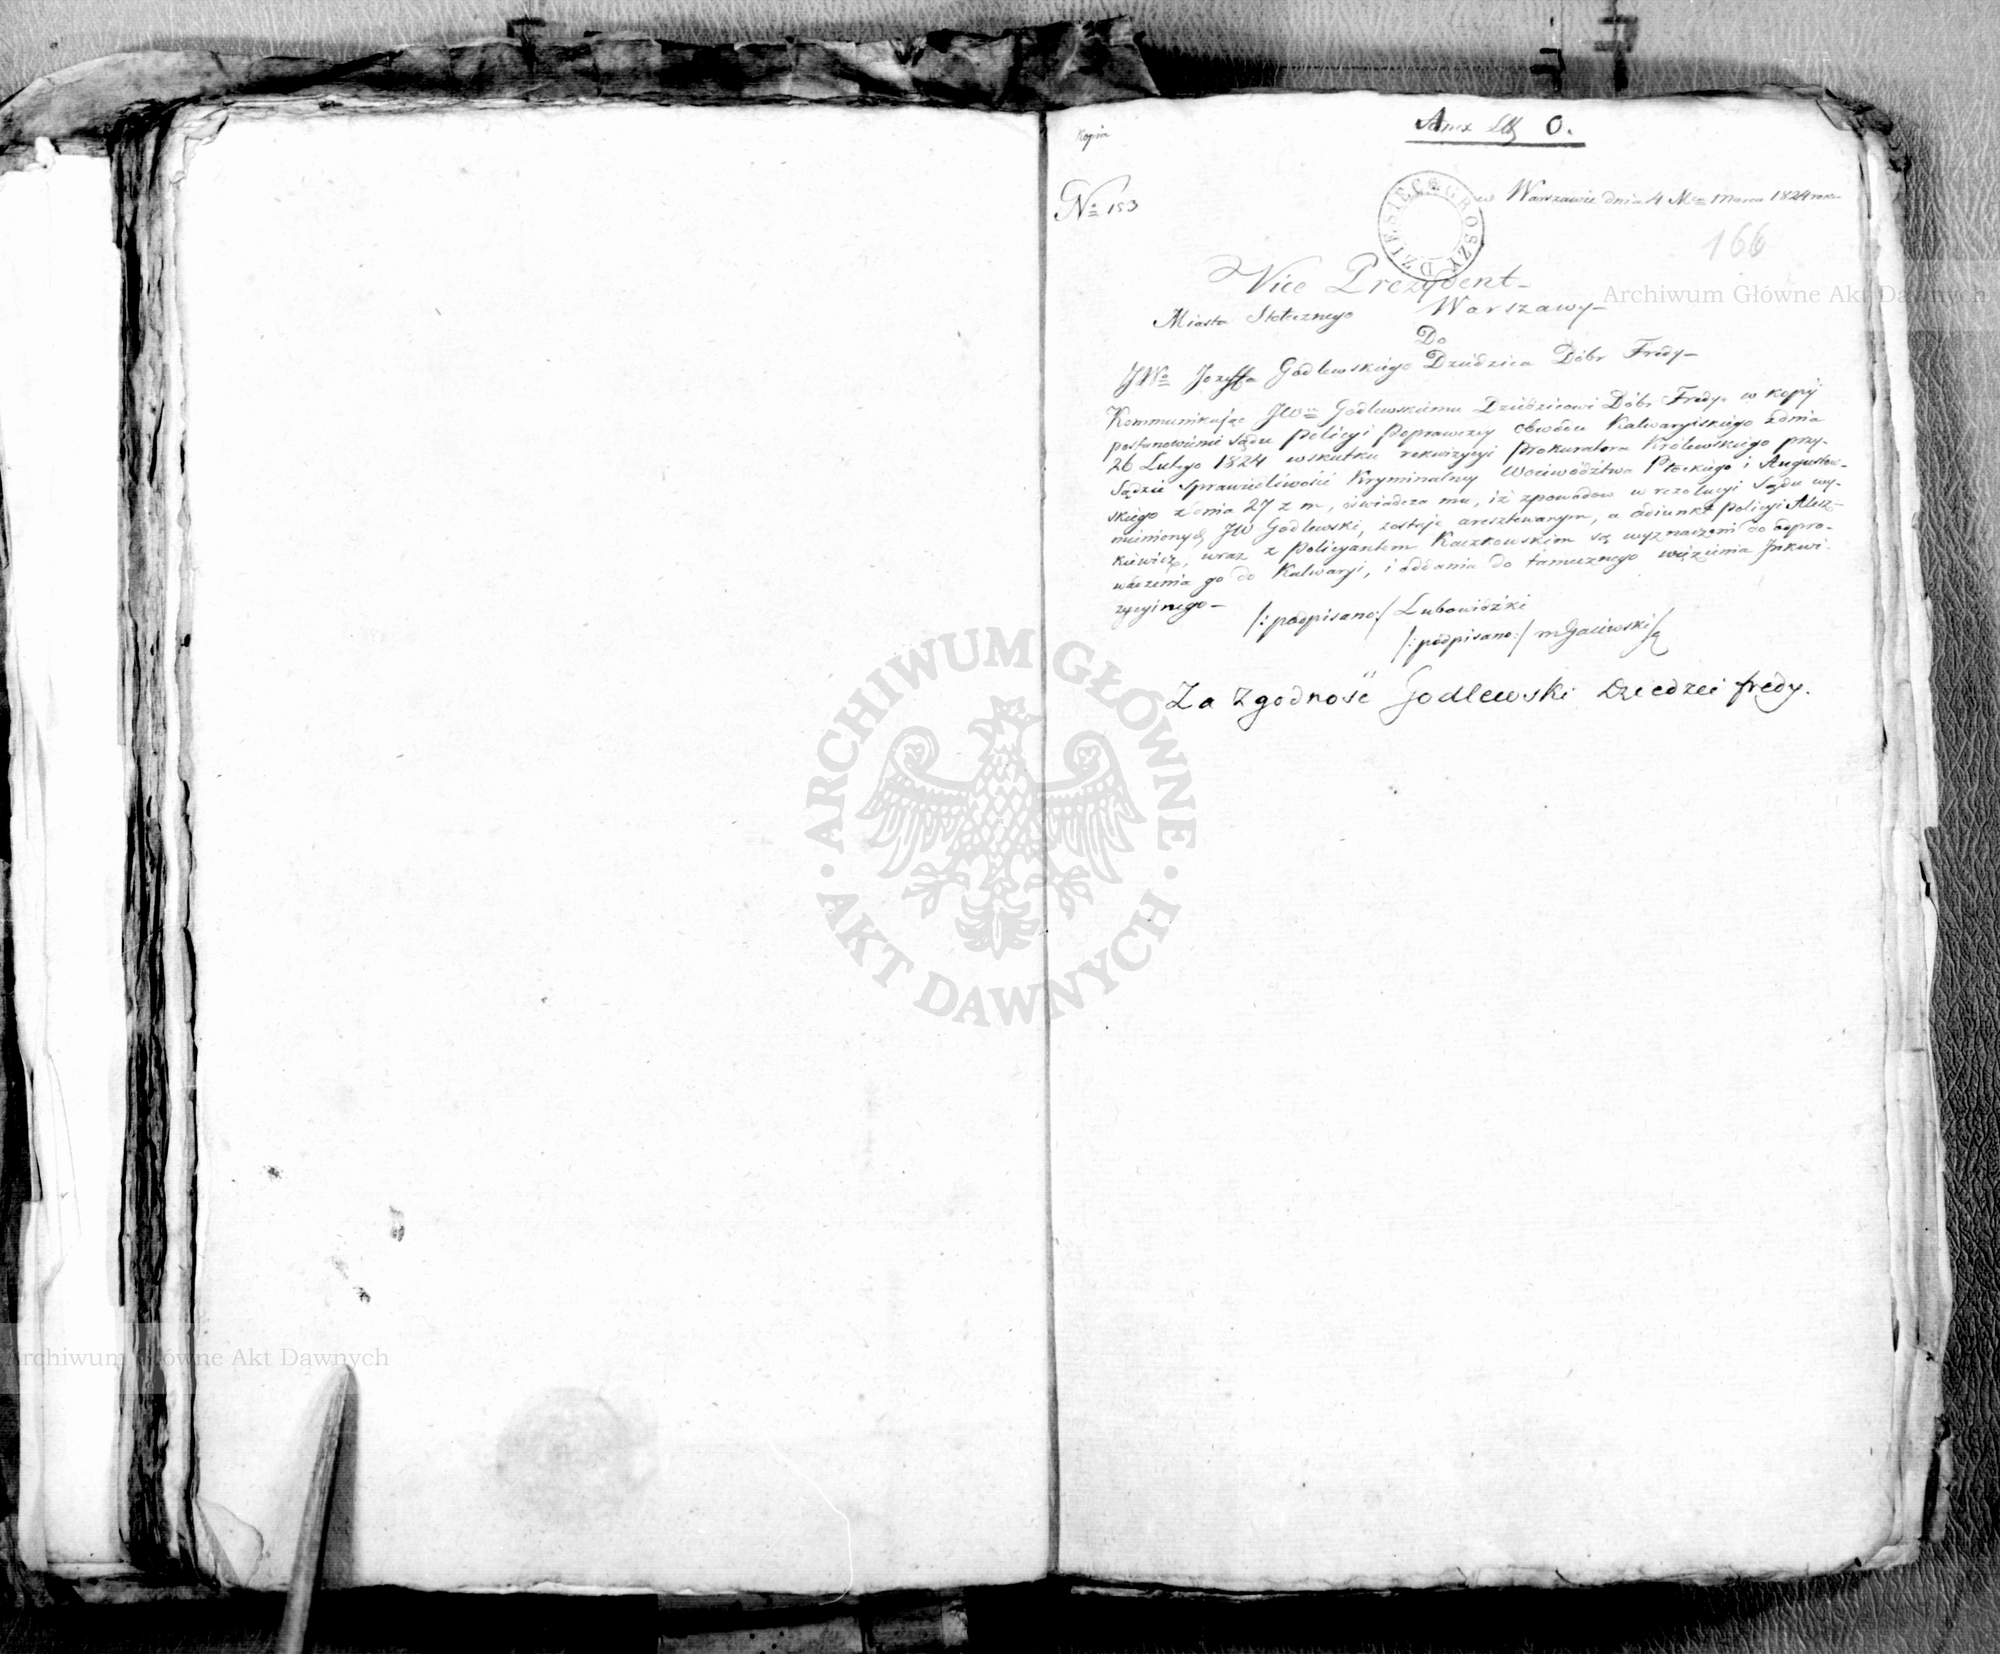 Kopia
Anex Lit O.
No 153
DZIESIĘĆ GROSZY
w Warszawie dnia 4 Mca Marca 1824 roku
166
Vice Prezydent
Miasta Stołecznego Warszawy
Do
JWo Jozeffa Godlewskiego Dziedzica Dóbr Fredy
Kommunikując JWmu Godlewskiemu Dziedzicowi Dóbr Fredy w kopij
postanowienie Sądu Policyi Poprawczey obwodu Kalwaryiskiego z dnia
26 Lutego 1824 w skutku rekwizycyi Prokuratora Królewskiego przy
Sądzie Sprawiedliwości Kryminalney Województwa Płockiego i Augustow-
skiego z dnia 27 z m, oświadcza mu, iż z powodow w rezolucyi Sądu wy-
mienionych, JW Godlewski, zostaje aresztowanym, a adiunkt Policyi Alesz-
kiewicz, wraz z Policyantem Kaczkowskim są wyznaczeni do odpro-
wadzenia go do Kalwaryi, i oddania do tamecznego więzienia Inkwi-
zycyinego
/: podpisano:/ Lubowidzki
/: podpisano:/ m Gaiewski
Za Zgodność Godlewski Dziedzic fredy.
Archiwum Główne Akt Dawnych
ARCHIWUM GŁÓWNE AKT DAWNYCH
Archiwum Główne Akt Dawnych